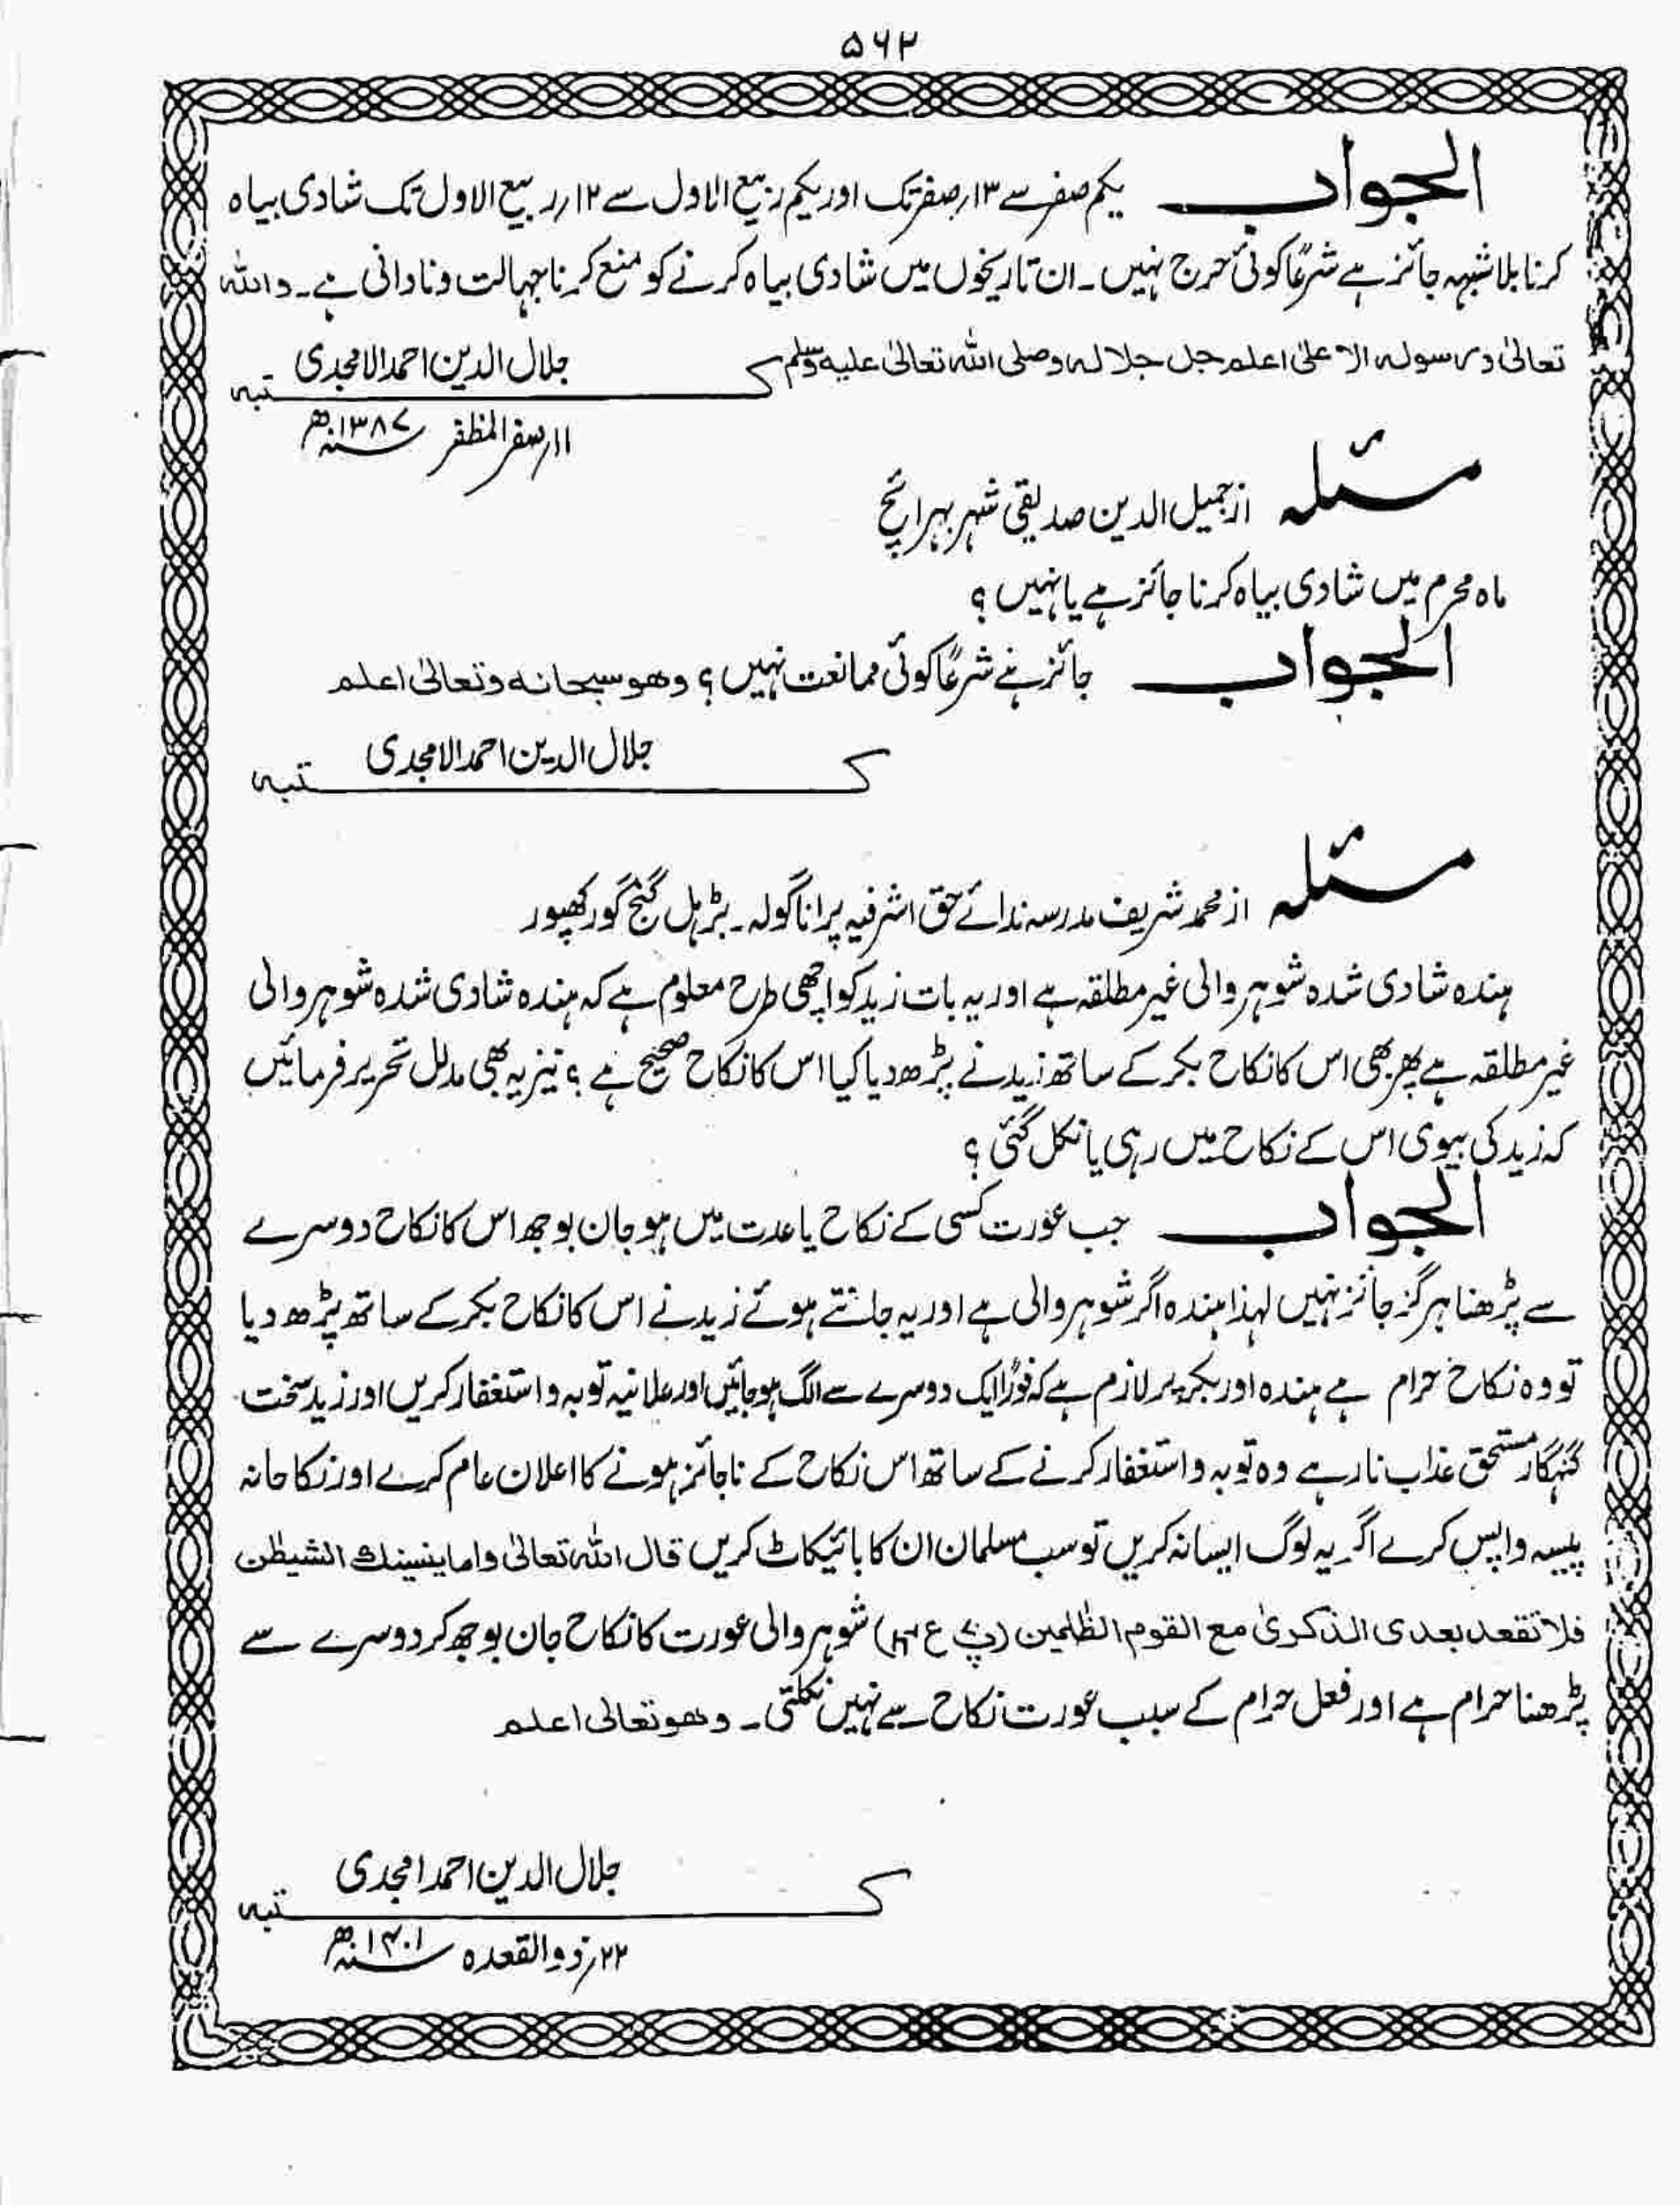 ۵۶۲
الجواب یکم صفر سے ۱۳؍صفر تک اور یکم ربیع الاول سے ۱۲؍ربیع الاول تک شادی بیاہ
کرنا بلاشبہہ جائز ہے شرعًا کوئی حرج نہیں۔ ان تاریخوں میں شادی بیاہ کرنے کو منع کرنا جہالت و نادانی ہے۔ واللہ
تعالیٰ ورسولہ الاعلیٰ اعلم جل جلالہ وصلی اللہ تعالیٰ علیہ وسلم
جلال الدین احمد الامجدی
کتبہ
۱۱؍صفر المظفر ۱۳۸۷ھ
مسئلہ از جمیل الدین صدیقی شہر بہرائچ
ماہ محرم میں شادی بیاہ کرنا جائز ہے یا نہیں؟
الجواب جائز ہے شرعًا کوئی ممانعت نہیں؟ وھو سبحانہ وتعالیٰ اعلم
جلال الدین احمد الامجدی
کتبہ
مسئلہ از محمد شریف مدرسہ ندائے حق اشرفیہ پرانا گولہ۔ بڑہل گنج گورکھپور
ہندہ شادی شدہ شوہر والی غیر مطلقہ ہے اور یہ بات زید کو اچھی طرح معلوم ہے کہ ہندہ شادی شدہ شوہر والی
غیر مطلقہ ہے پھر بھی اس کا نکاح بکر کے ساتھ زید نے پڑھ دیا کیا اس کا نکاح صحیح ہے؟ نیز یہ بھی مدلل تحریر فرمائیں
کہ زید کی بیوی اس کے نکاح میں رہی یا نکل گئی؟
الجواب جب عورت کسی کے نکاح یا عدت میں ہو جان بوجھ اس کا نکاح دوسرے
سے پڑھنا ہرگز جائز نہیں لہذا ہندہ اگر شوہر والی ہے اور یہ جانتے ہوئے زید نے اس کا نکاح بکر کے ساتھ پڑھ دیا
تو وہ نکاح حرام ہے ہندہ اور بکر پر لازم ہے کہ فورًا ایک دوسرے سے الگ ہو جائیں اور علانیہ توبہ و استغفار کریں اور زید سخت
گنہگار مستحق عذاب نار ہے وہ توبہ و استغفار کرنے کے ساتھ اس نکاح کے ناجائز ہونے کا اعلان عام کرے اور نکاحانہ
پیسہ واپس کرے اگر یہ لوگ ایسا نہ کریں تو سب مسلمان ان کا بائیکاٹ کریں قال اللہ تعالیٰ واما ینسینک الشیطٰن
فلا تقعد بعدی الذکریٰ مع القوم الظٰلمین (پ۷ ع۱۴) شوہر والی عورت کا نکاح جان بوجھ کر دوسرے سے
پڑھنا حرام ہے اور فعل حرام کے سبب عورت نکاح سے نہیں نکلتی۔ وھو تعالیٰ اعلم
جلال الدین احمد امجدی
کتبہ
۲۲؍ذوالقعدہ ۱۴۰۱ھ